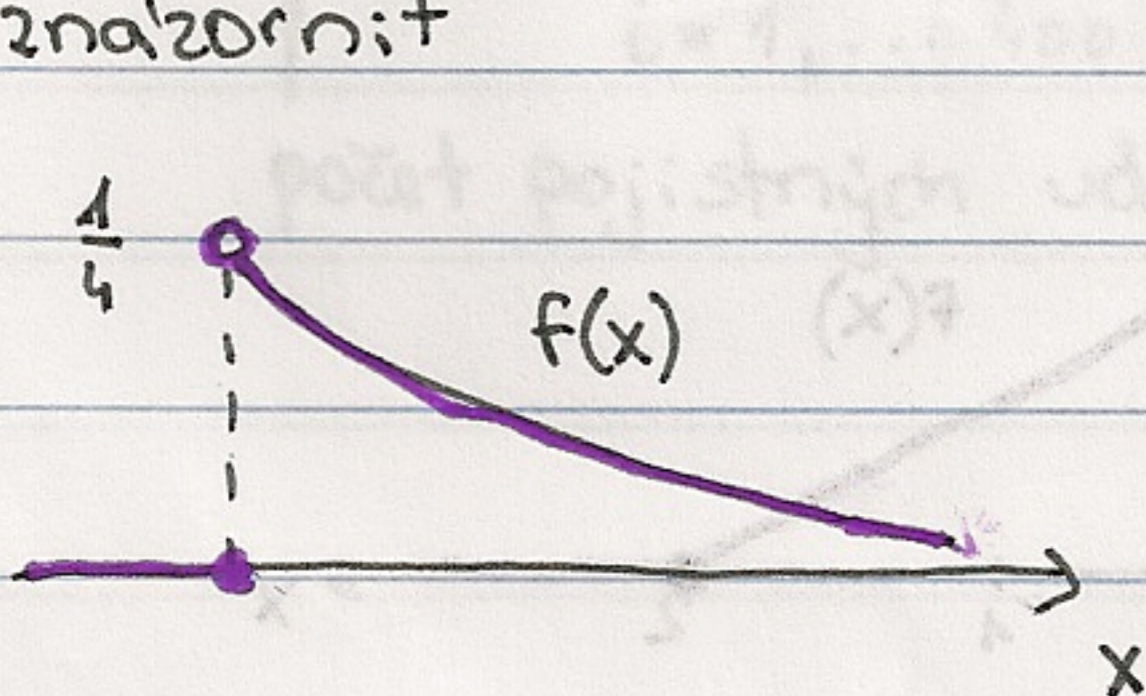 znázornit
1
4
f(x)
x